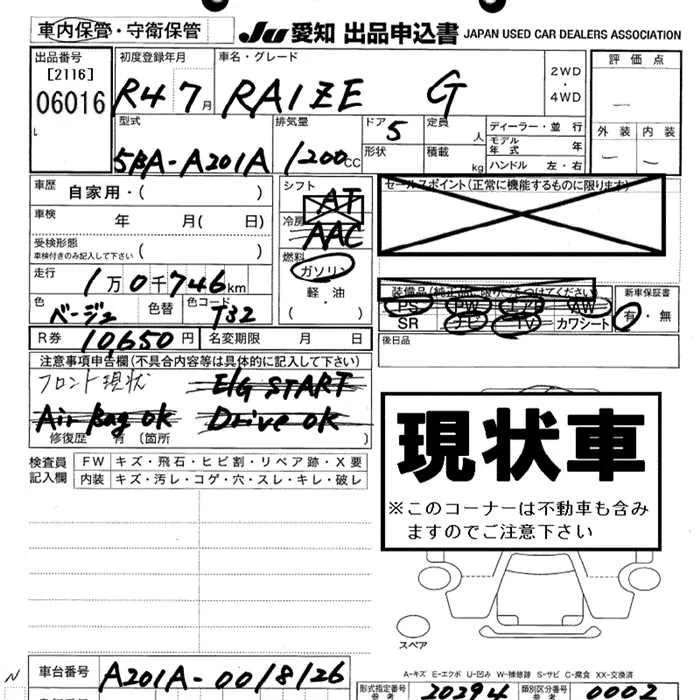 車内保管・守衛保管 JU 愛知 出品申込書 JAPAN USED CAR DEALERS ASSOCIATION
出品番号 [2116] 06016 L
初度登録年月 R4 7月
車名・グレード RAIZE G 2WD・4WD
評価点 —
外装 — 内装 —
型式 5BA-A201A
排気量 1200cc
ドア 5 形状
定員 人 積載 kg
ディーラー・並行
モデル年式 年
ハンドル 左・右
車歴 自家用・( )
車検 年 月( 日)
受検形態 車検付きのみ記入して下さい ( )
走行 1万0千746km
色 ベージュ 色替 色コード T32
シフト AT
冷房 AAC
燃料 ガソリン 軽・油
セールスポイント(正常に機能するものに限ります)
PS PW エアB AW
SR ナビ TV カワシート
新車保証書 有・無
R券 10,650円 名変期限 月 日
後日品
注意事項申告欄(不具合内容等は具体的に記入して下さい)
フロント現状 E/G START
Air Bag OK Drive OK
修復歴 有 (箇所 )
現状車
※このコーナーは不動車も含みますのでご注意下さい
検査員記入欄 FW キズ・飛石・ヒビ割・リペア跡・X要
内装 キズ・汚レ・コゲ・穴・スレ・キレ・破レ
スペア
A-キズ E-エクボ U-凹み W-補修跡 S-サビ C-腐食 XX-交換済
N 車台番号 A201A-0018126
形式指定番号 参考 20294 類別区分番号 参考 0002